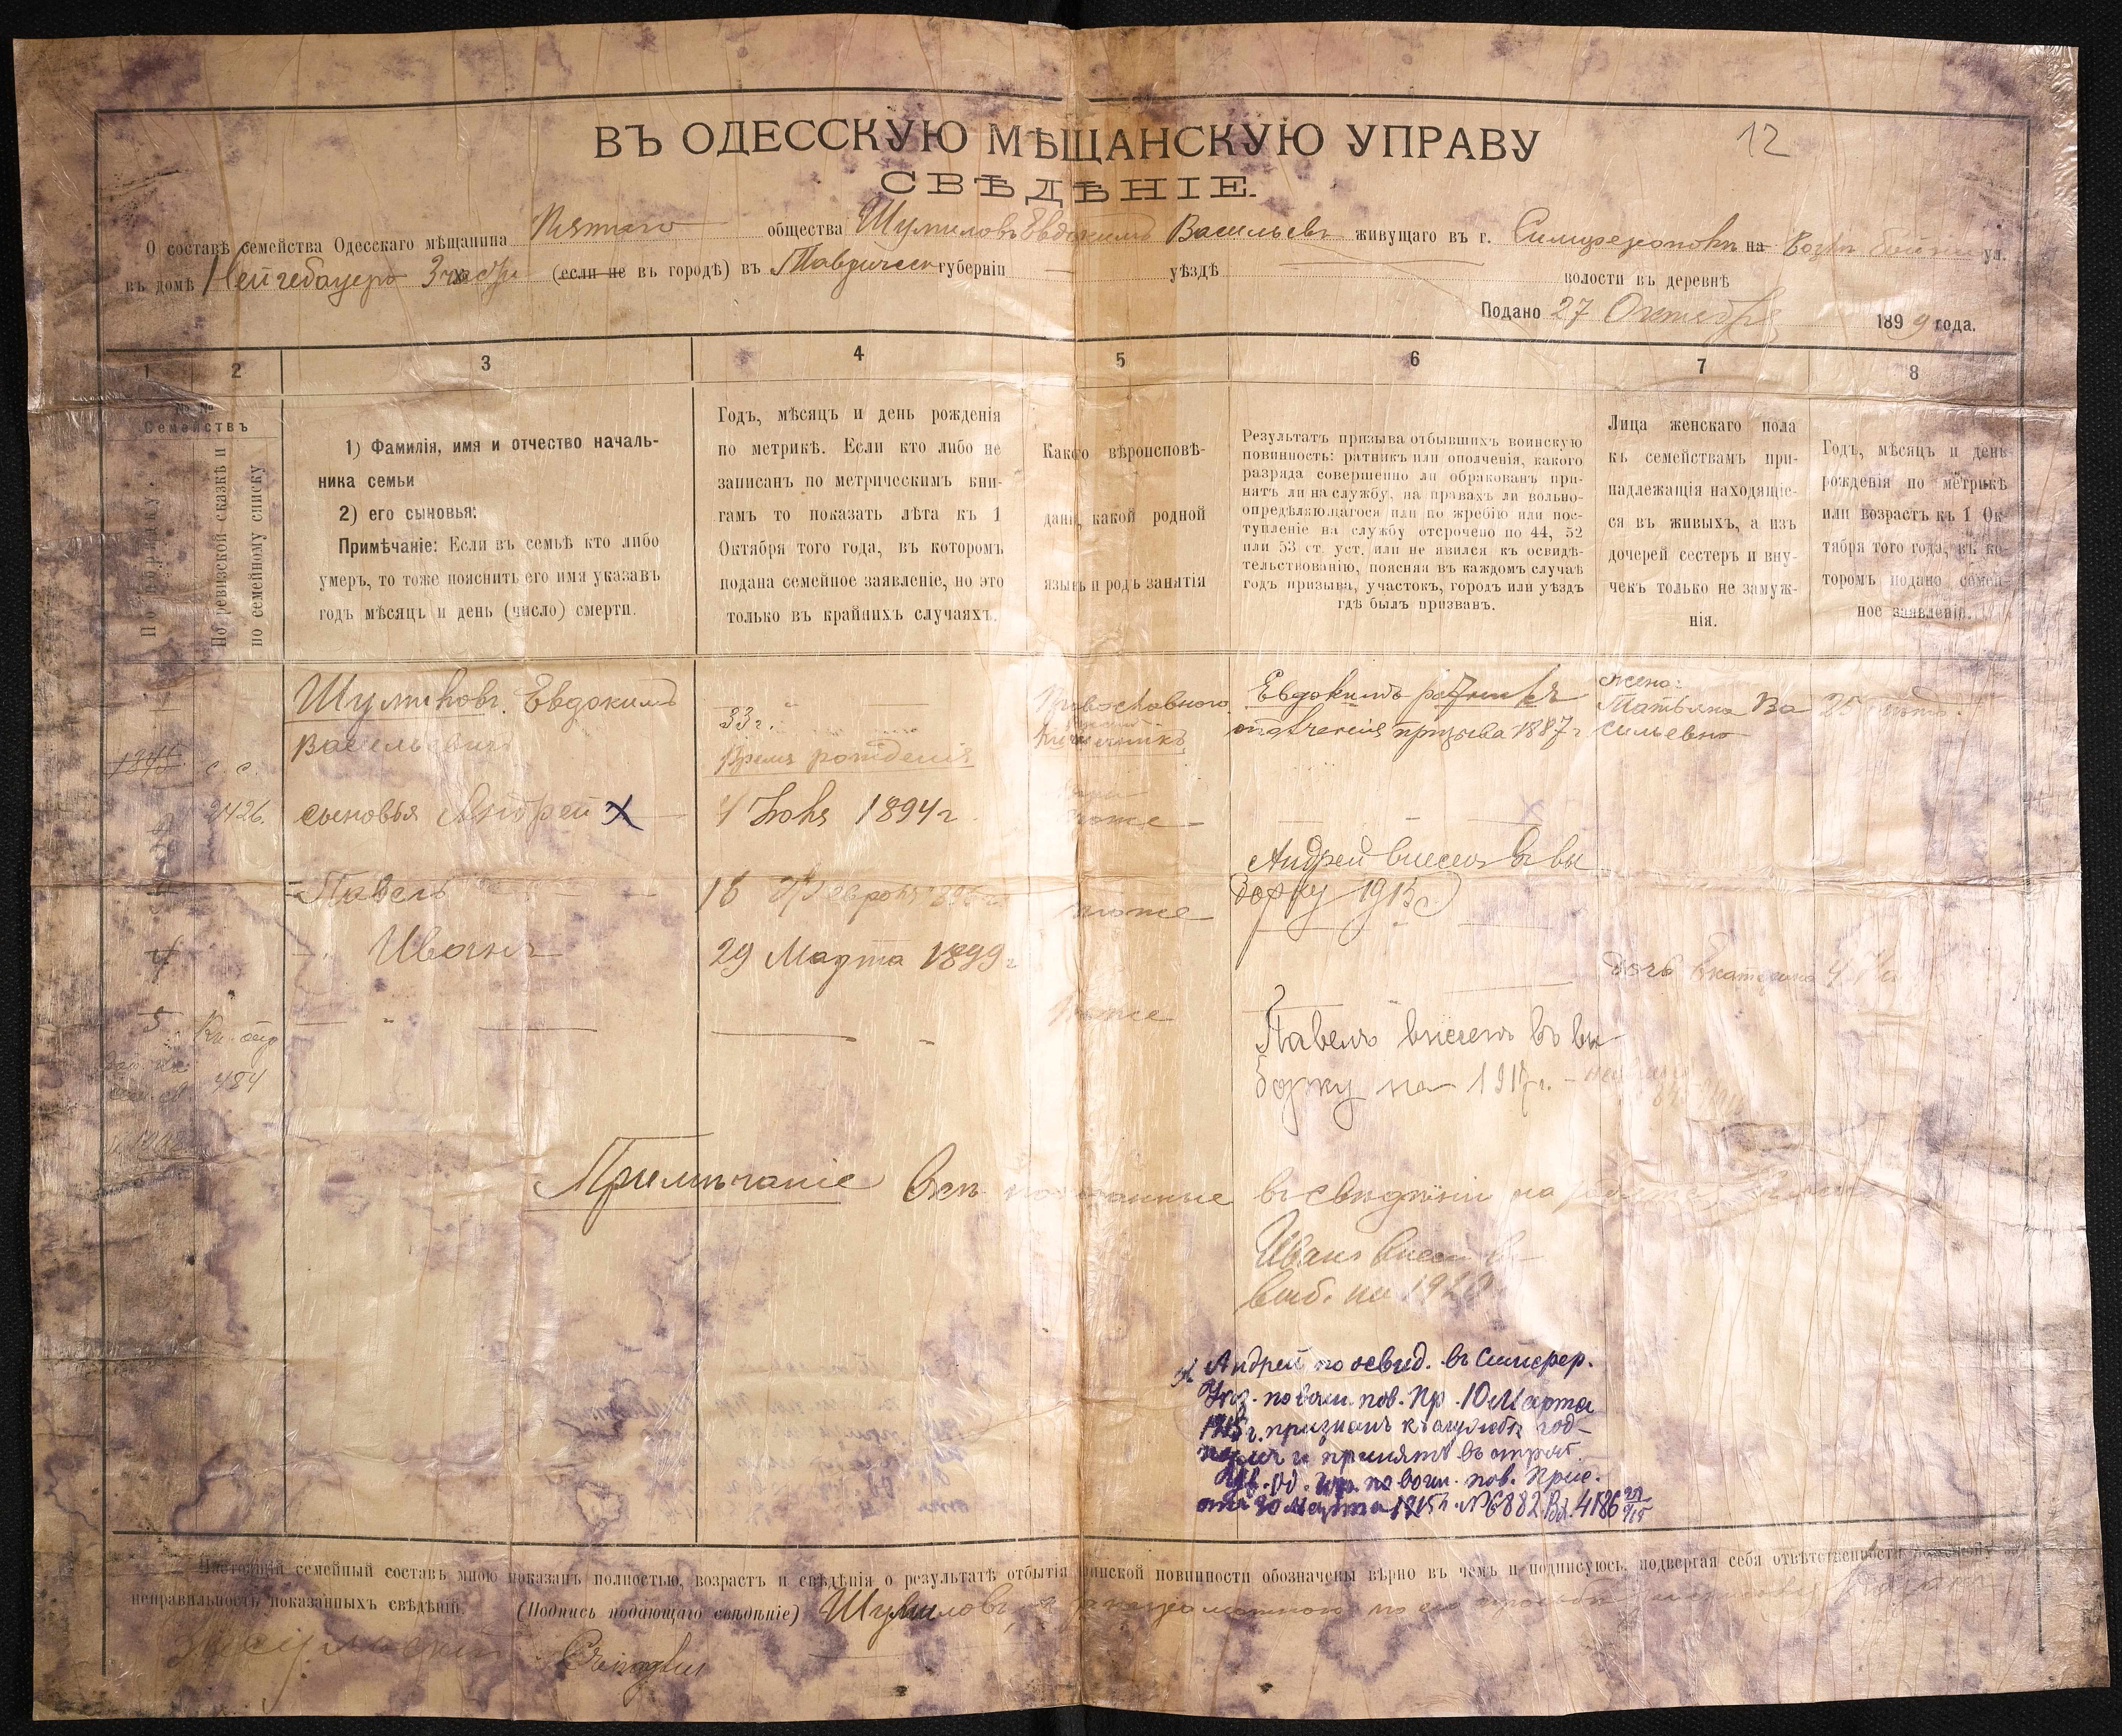 12
ВЪ ОДЕССКУЮ МѢЩАНСКУЮ УПРАВУ
СВѢДѢНІЕ.
О составѣ семейства Одесскаго мѣщанина Пятаго общества Шумиловъ Евдокимъ Васильевъ живущаго въ г. Симферополѣ на ул.
въ домѣ Нейгебауера 3 части (если не въ городѣ) въ Тавричесн губерніи уѣздѣ волости въ деревнѣ
Подано 27 Октября 1899 года.
1 2 3 4 5 6 7 8
№ №
Семействъ
По порядку.
По ревизской сказкѣ и
по семейному списку
1) Фамилія, имя и отчество началь-
ника семьи
2) его сыновья:
Примѣчаніе: Если въ семьѣ кто либо
умеръ, то тоже пояснить его имя указавъ
годъ мѣсяцъ и день (число) смерти.
Годъ, мѣсяцъ и день рожденія
по метрикѣ. Если кто либо не
записанъ по метрическимъ кни-
гамъ то показать лѣта къ 1
Октября того года, въ которомъ
подана семейное заявленіе, но это
только въ крайнихъ случаяхъ.
Какого вѣроисповѣ-
данія, какой родной
языкъ и родъ занятія
Результатъ призыва отбывшихъ воинскую
повинность: ратникъ или ополченія, какого
разряда совершенно ли обракованъ при-
нятъ ли на службу, на правахъ ли вольно-
опредѣляющагося или по жребію или пос-
тупленіе на службу отсрочено по 44, 52
или 53 ст. уст, или не явился къ освидѣ-
тельствованію, поясняя въ каждомъ случаѣ
годъ призыва, участокъ, городъ или уѣздъ
гдѣ былъ призванъ.
Лица женскаго пола
къ семействамъ при-
надлежащія находящіе-
ся въ живыхъ, а изъ
дочерей сестеръ и вну-
чекъ только не замуж-
нія.
Годъ, мѣсяцъ и день
рожденія по метрикѣ
или возрастъ къ 1 Ок-
тября того года, въ ко-
торомъ подано семей-
ное заявленіи.
1
Шумиловъ Евдокимъ
Васильевичъ
33 г.
Время рожденія
Православного
Евдокимъ ратникъ
ополченія призыва 1887 г
жена:
Татьяна Ва
сильевна
25 лѣтъ
с. с.
2426.
сыновья Андрей X
1894 г
тоже
Андрей внесенъ въ вы
борку 1915
Павелъ
18 Февраля
тоже
4
Иванъ
29 Марта 1899 г
тоже
дочь Екатерина
5
484
Павелъ внесенъ въ вы
борку на 1917 г.
Примѣчаніе Всѣ показанные въ свѣдѣніи на
Иванъ внесенъ въ
выб. на 1920
X Андрей по освид. въ Симфер.
Уѣз. по воин. пов. Пр. 10 Марта
1915 г. признанъ къ службѣ год-
нымъ и принятъ
по воин. пов. Прис.
отъ 20 Марта 1915 г. № 6882 Вх. 4186
Настоящій семейный составъ мною показанъ полностью, возрастъ и свѣдѣнія о результатѣ отбытія воинской повинности обозначены вѣрно въ чемъ и подписуюсь, подвергая себя отвѣтственности
неправильность показанныхъ свѣдѣній. (Подпись подающаго свѣдѣніе) Шумиловъ, а за неграмотного по его просьбѣ